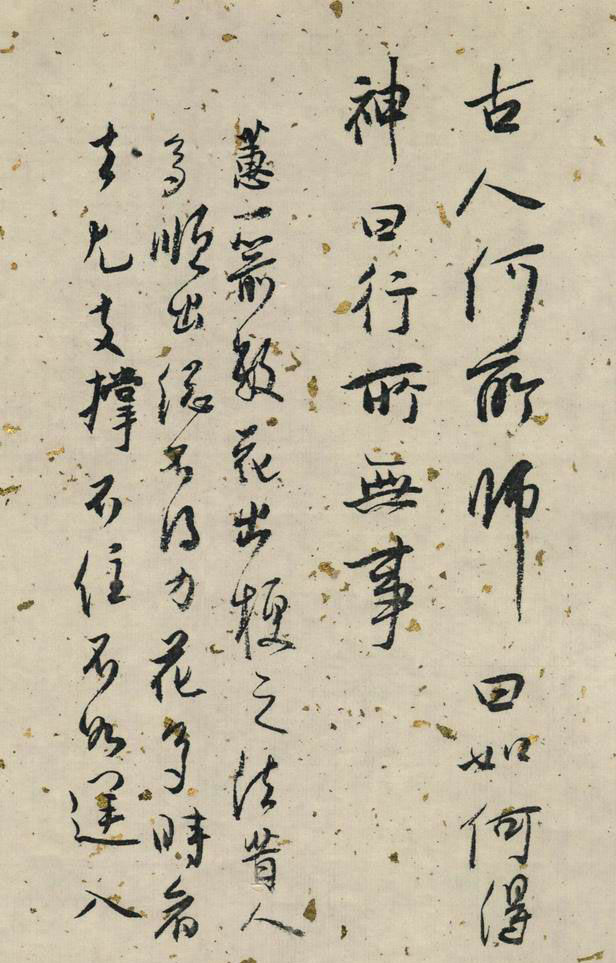 古人何所師曰如何得
神曰行所無事
蕙一箭數花出梗之法昔人
多順出總不得力花多時看
去尤支撐不住不如逆入